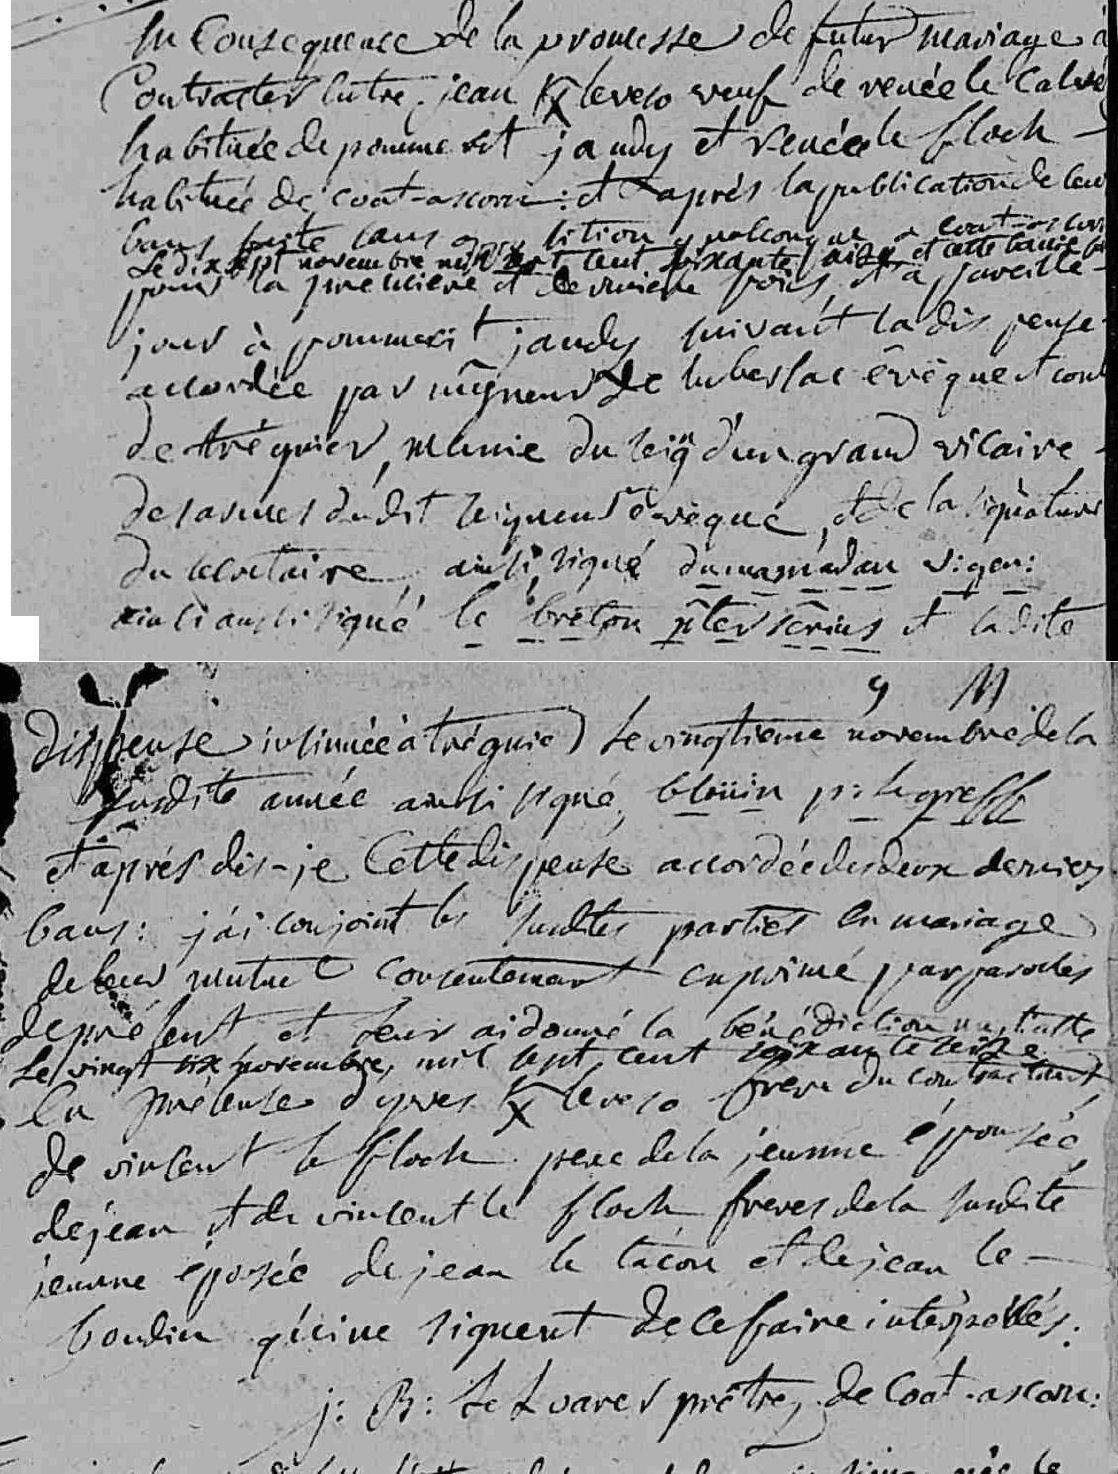 En Consequence de la promesse de futur mariage à
Contracter Entre jean Kleveso veuf de renée le Calvé
habituée de pommerit jaudy et Renée le floch
habituée de coat-ascorn : et après la publication de leur
bans faite sans opposition quelconque a coat-ascorn
Le dix sept novembre mil sept cent soixante seize et cette tant
pour la premiere et derniere fois, et à pareille
jour à pommerit jaudy suivant la dispense
accordée par mgneur De luberSac évêque et comte
de tréguier, munie du seig d'un grand vicaire
des armes du dit seigneur évêque, et de la signature
du secretaire, ainsi signé dumanadau vi. gen:
ainsi aussi signé le breton pter scrius et la dite
9 M
dispense insinuée à tréguier Le vingtieme novembre de la
susdite année ainsi signé, bloüin pr: le greffe
et après dis-je Cette dispense accordée des deux derniers
bans : j'ai conjoint les susdites parties En mariage
de leur mutuel consentement exprimé par paroles
de présent, et leur ai donné la bénédiction nuptialle
Le vingt six novembre, mil sept cent soixante seize
En présense d'yves Kleveso frere du contractant,
de vincent le floch pere de la jeunne épousée
de jean et de vincent le floch freres de la susdite
jeunne éposée de jean le tacon et de jean le
boudin q'ui ne signent De ce faire interpellés.
j: B: Le Luarer prêtre, de Coat-ascorn: